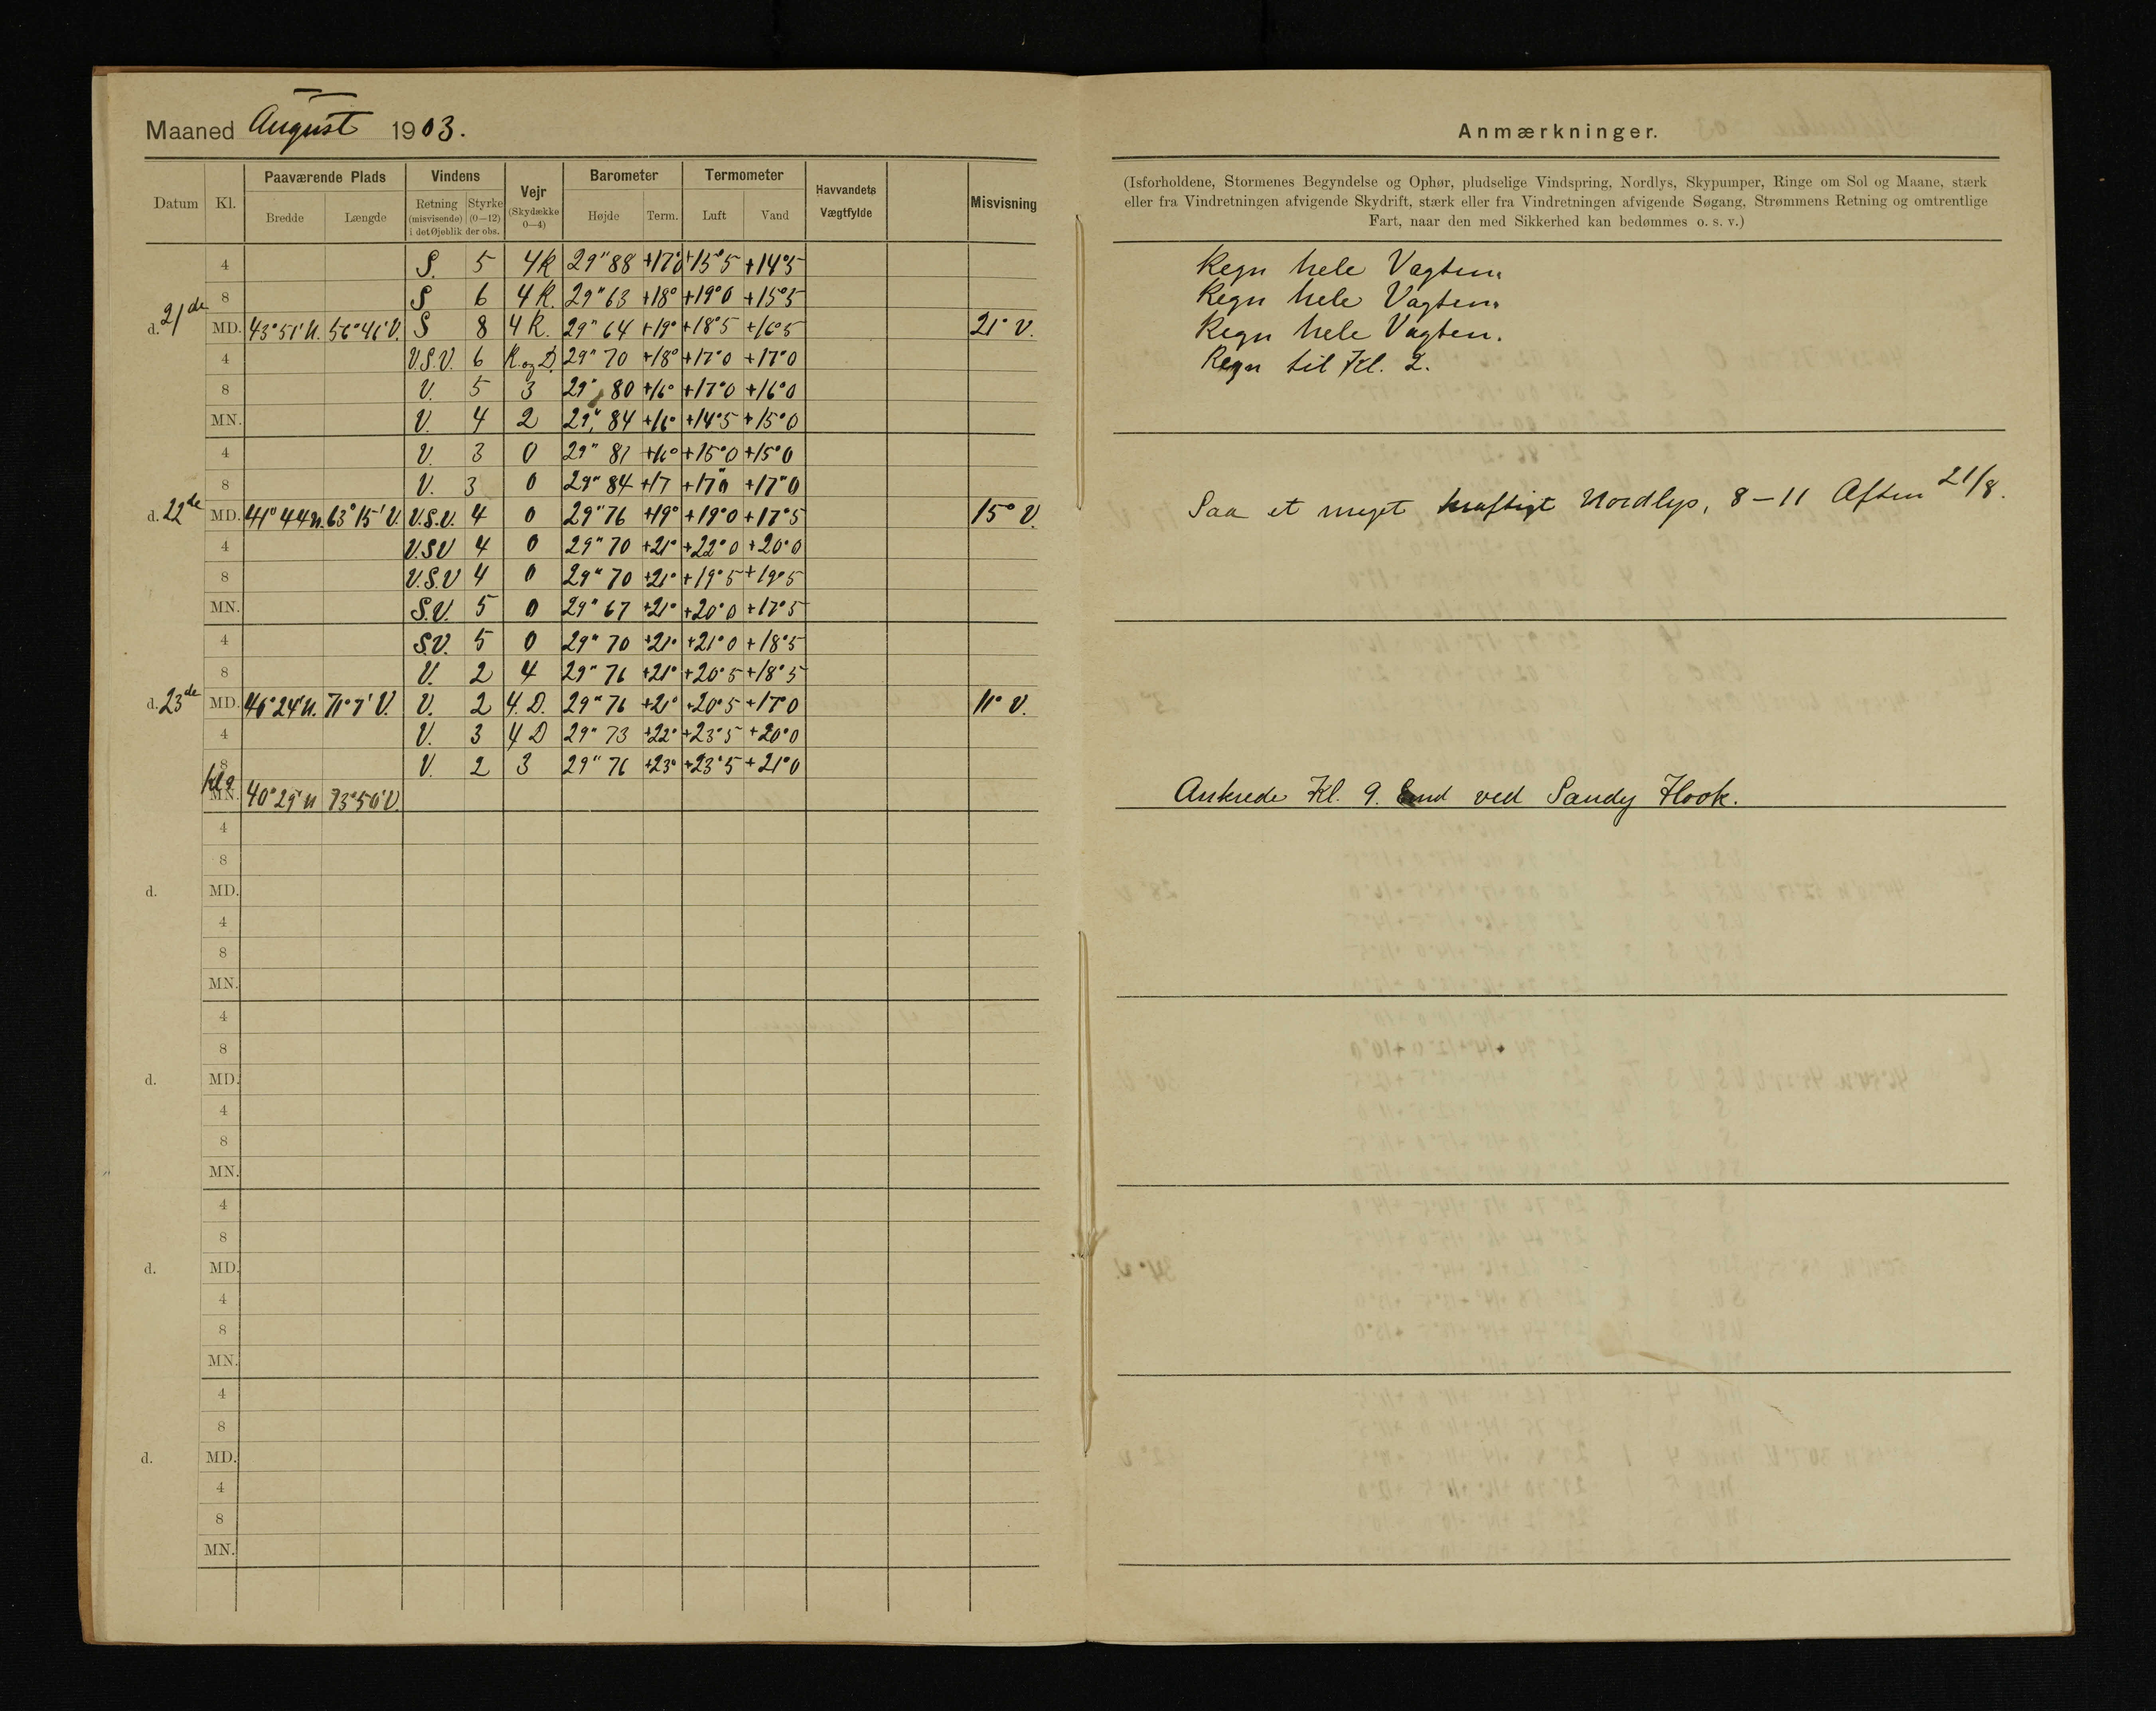 Maaned August 1903.
Datum Kl. Paaværende Plads Vindens Vejr (Skydække 0—4) Barometer Termometer Havvandets Vægtfylde Misvisning
Bredde Længde Retning (misvisende) Styrke (0—12) i det Øjeblik der obs. Højde Term. Luft Vand
4 S. 5 4 R 29" 88 +17° +15°5 +14°5
8 S 6 4 R. 29" 63 +18° +19°0 +15°5
d. 21de MD. 43°51' N. 56°46' V. S 8 4 R. 29" 64 +19° +18°5 +16°5 21° V.
4 V.S.V. 6 R. og D. 29" 70 +18° +17°0 +17°0
8 V. 5 3 29" 80 +16° +17°0 +16°0
MN. V. 4 2 29" 84 +16° +14°5 +15°0
4 V. 3 0 29" 81 +16° +15°0 +15°0
8 V. 3 0 29" 84 +17 +17°0 +17°0
d. 22de MD. 41° 44 N. 63° 15' V. V.S.V. 4 0 29" 76 +19° +19°0 +17°5 15° V.
4 V.S.V 4 0 29" 70 +21° +22°0 +20°0
8 V.S.V 4 0 29" 70 +21° +19°5 +19°5
MN. S.V. 5 0 29" 67 +21° +20°0 +17°5
4 S.V. 5 0 29" 70 +21° +21°0 +18°5
8 V. 2 4 29" 76 +21° +20°5 +18°5
d. 23de MD. 46°24' N. 71°7' V. V. 2 4. D. 29" 76 +21° +20°5 +17°0 11° V.
4 V. 3 4 D 29" 73 +22° +23°5 +20°0
8 V. 2 3 29" 76 +23° +23°5 +21°0
Kl 9 MN. 40°29' N 73°50' V.
4
8
d. MD.
4
8
MN.
4
8
d. MD.
4
8
MN.
4
8
d. MD.
4
8
MN.
4
8
d. MD.
4
8
MN.
Anmærkninger.
(Isforholdene, Stormenes Begyndelse og Ophør, pludselige Vindspring, Nordlys, Skypumper, Ringe om Sol og Maane, stærk
eller fra Vindretningen afvigende Skydrift, stærk eller fra Vindretningen afvigende Søgang, Strømmens Retning og omtrentlige
Fart, naar den med Sikkerhed kan bedømmes o. s. v.)
Regn hele Vagten.
Regn hele Vagten.
Regn hele Vagten.
Regn til Kl. 2.
Saa et meget kraftigt Nordlys, 8—11 Aften 21/8.
Ankrede Kl. 9. Emd ved Sandy Hook.